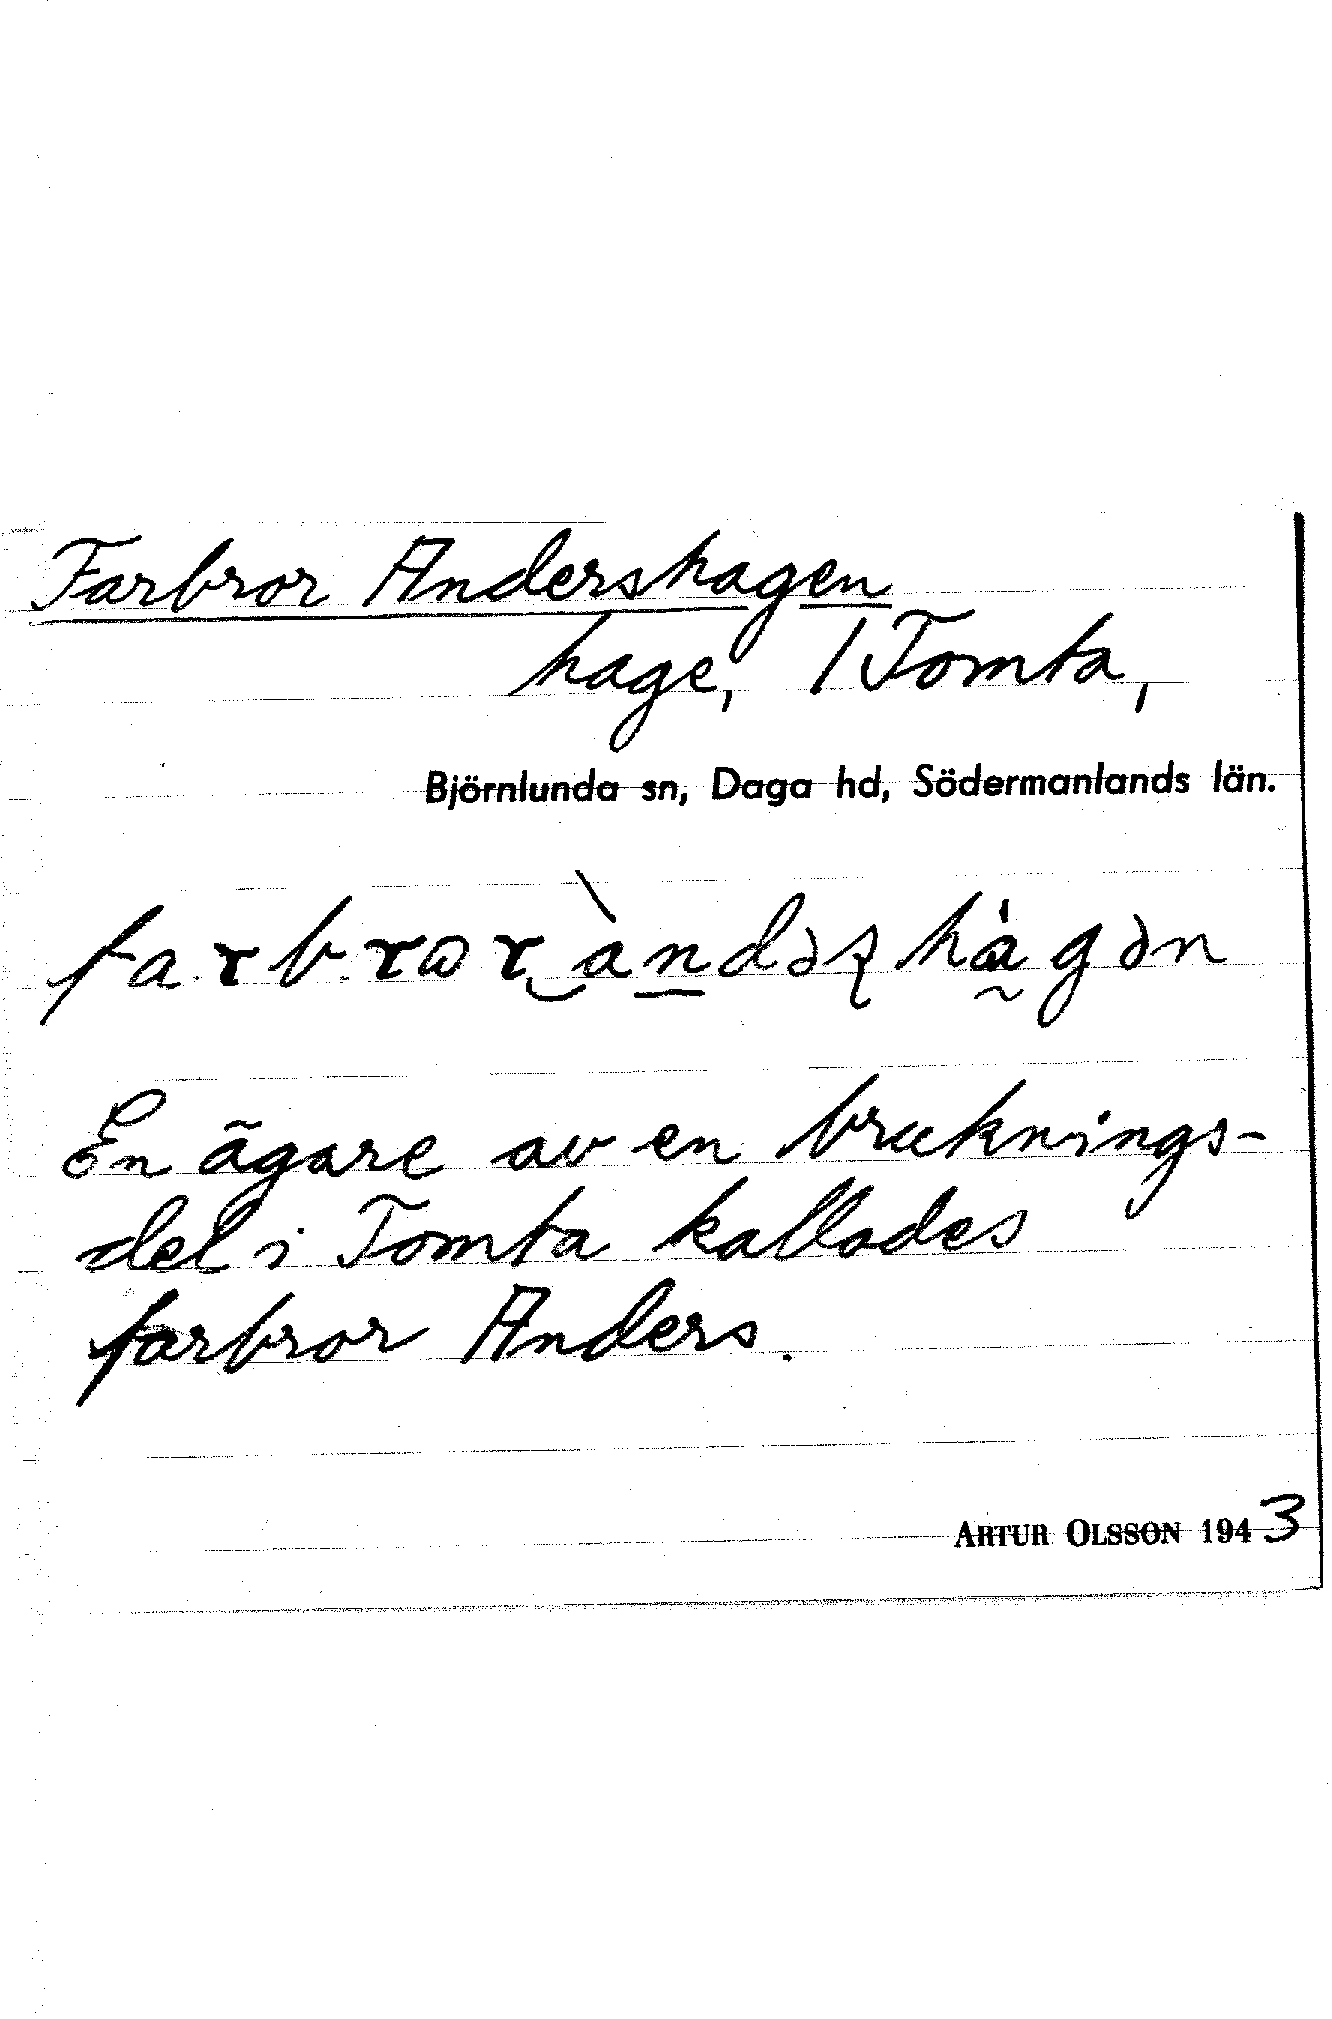 Farbror Andershagen
hage, / Tomta,
Björnlunda sn, Daga hd, Södermanlands län.
farbrωr‿àndəʂhàgən
En ägare av en bruknings-
del i Tomta kallades
farbror Anders.
ARTUR OLSSON 1943